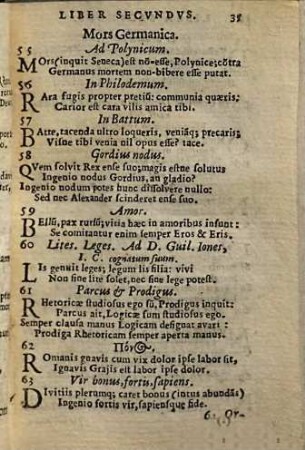 LIBER SECVNDVS. 35
Mors Germanica.
55 Ad Polynicum.
MOrs (inquit Seneca) est nō-esse, Polynice; cōtra
Germanus mortem non-bibere esse putat.
56 In Philodemum.
RAra fugis propter pretiū: communia quæris:
Carior est cara vilis amica tibi.
57 In Battum.
BAtte, tacenda ultro loqueris, veniāq; precaris;
Visne tibi venia nil opus esse? tace.
58 Gordius nodus.
QVem solvit Rex ense suo; magis estne solutus
Ingenio nodus Gordius, an gladio?
Ingenio nodum potes hunc dissolvere nullo:
Sed nec Alexander scinderet ense suo.
59 Amor.
BEllū, pax rursū; vitia hæc in amoribus insunt:
Se comitantur enim semper Eros & Eris.
60 Lites. Leges. Ad D. Guil. Iones,
I. C. cognatum suum.
LIs genuit leges; legum lis filia: vivi
Non sine lite solet, nec sine lege potest.
61 Parcus & Prodigus.
RHetoricæ studiosus ego sū, Prodigus inquit:
Parcus ait, Logicæ sum studiosus ego.
Semper clausa manus Logicam designat avari:
Prodiga Rhetoricam semper aperta manus.
62 Πόνος.
ROmanis gnavis cum vix dolor ipse labor sit,
Ignavis Grajis est labor ipse dolor.
63 Vir bonus, fortis, sapiens.
DIvitiis plerumq; caret bonus (intus abundās)
Ingenio fortis vir, sapiensque fide.